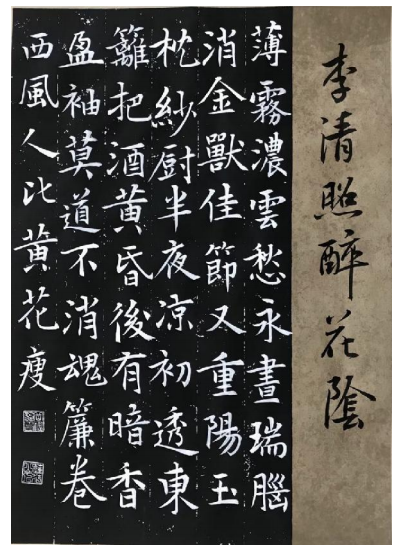 李清照醉花陰
薄霧濃雲愁永晝瑞腦
消金獸佳節又重陽玉
枕紗厨半夜凉初透東
籬把酒黃昏後有暗香
盈袖莫道不消魂簾卷
西風人比黃花瘦